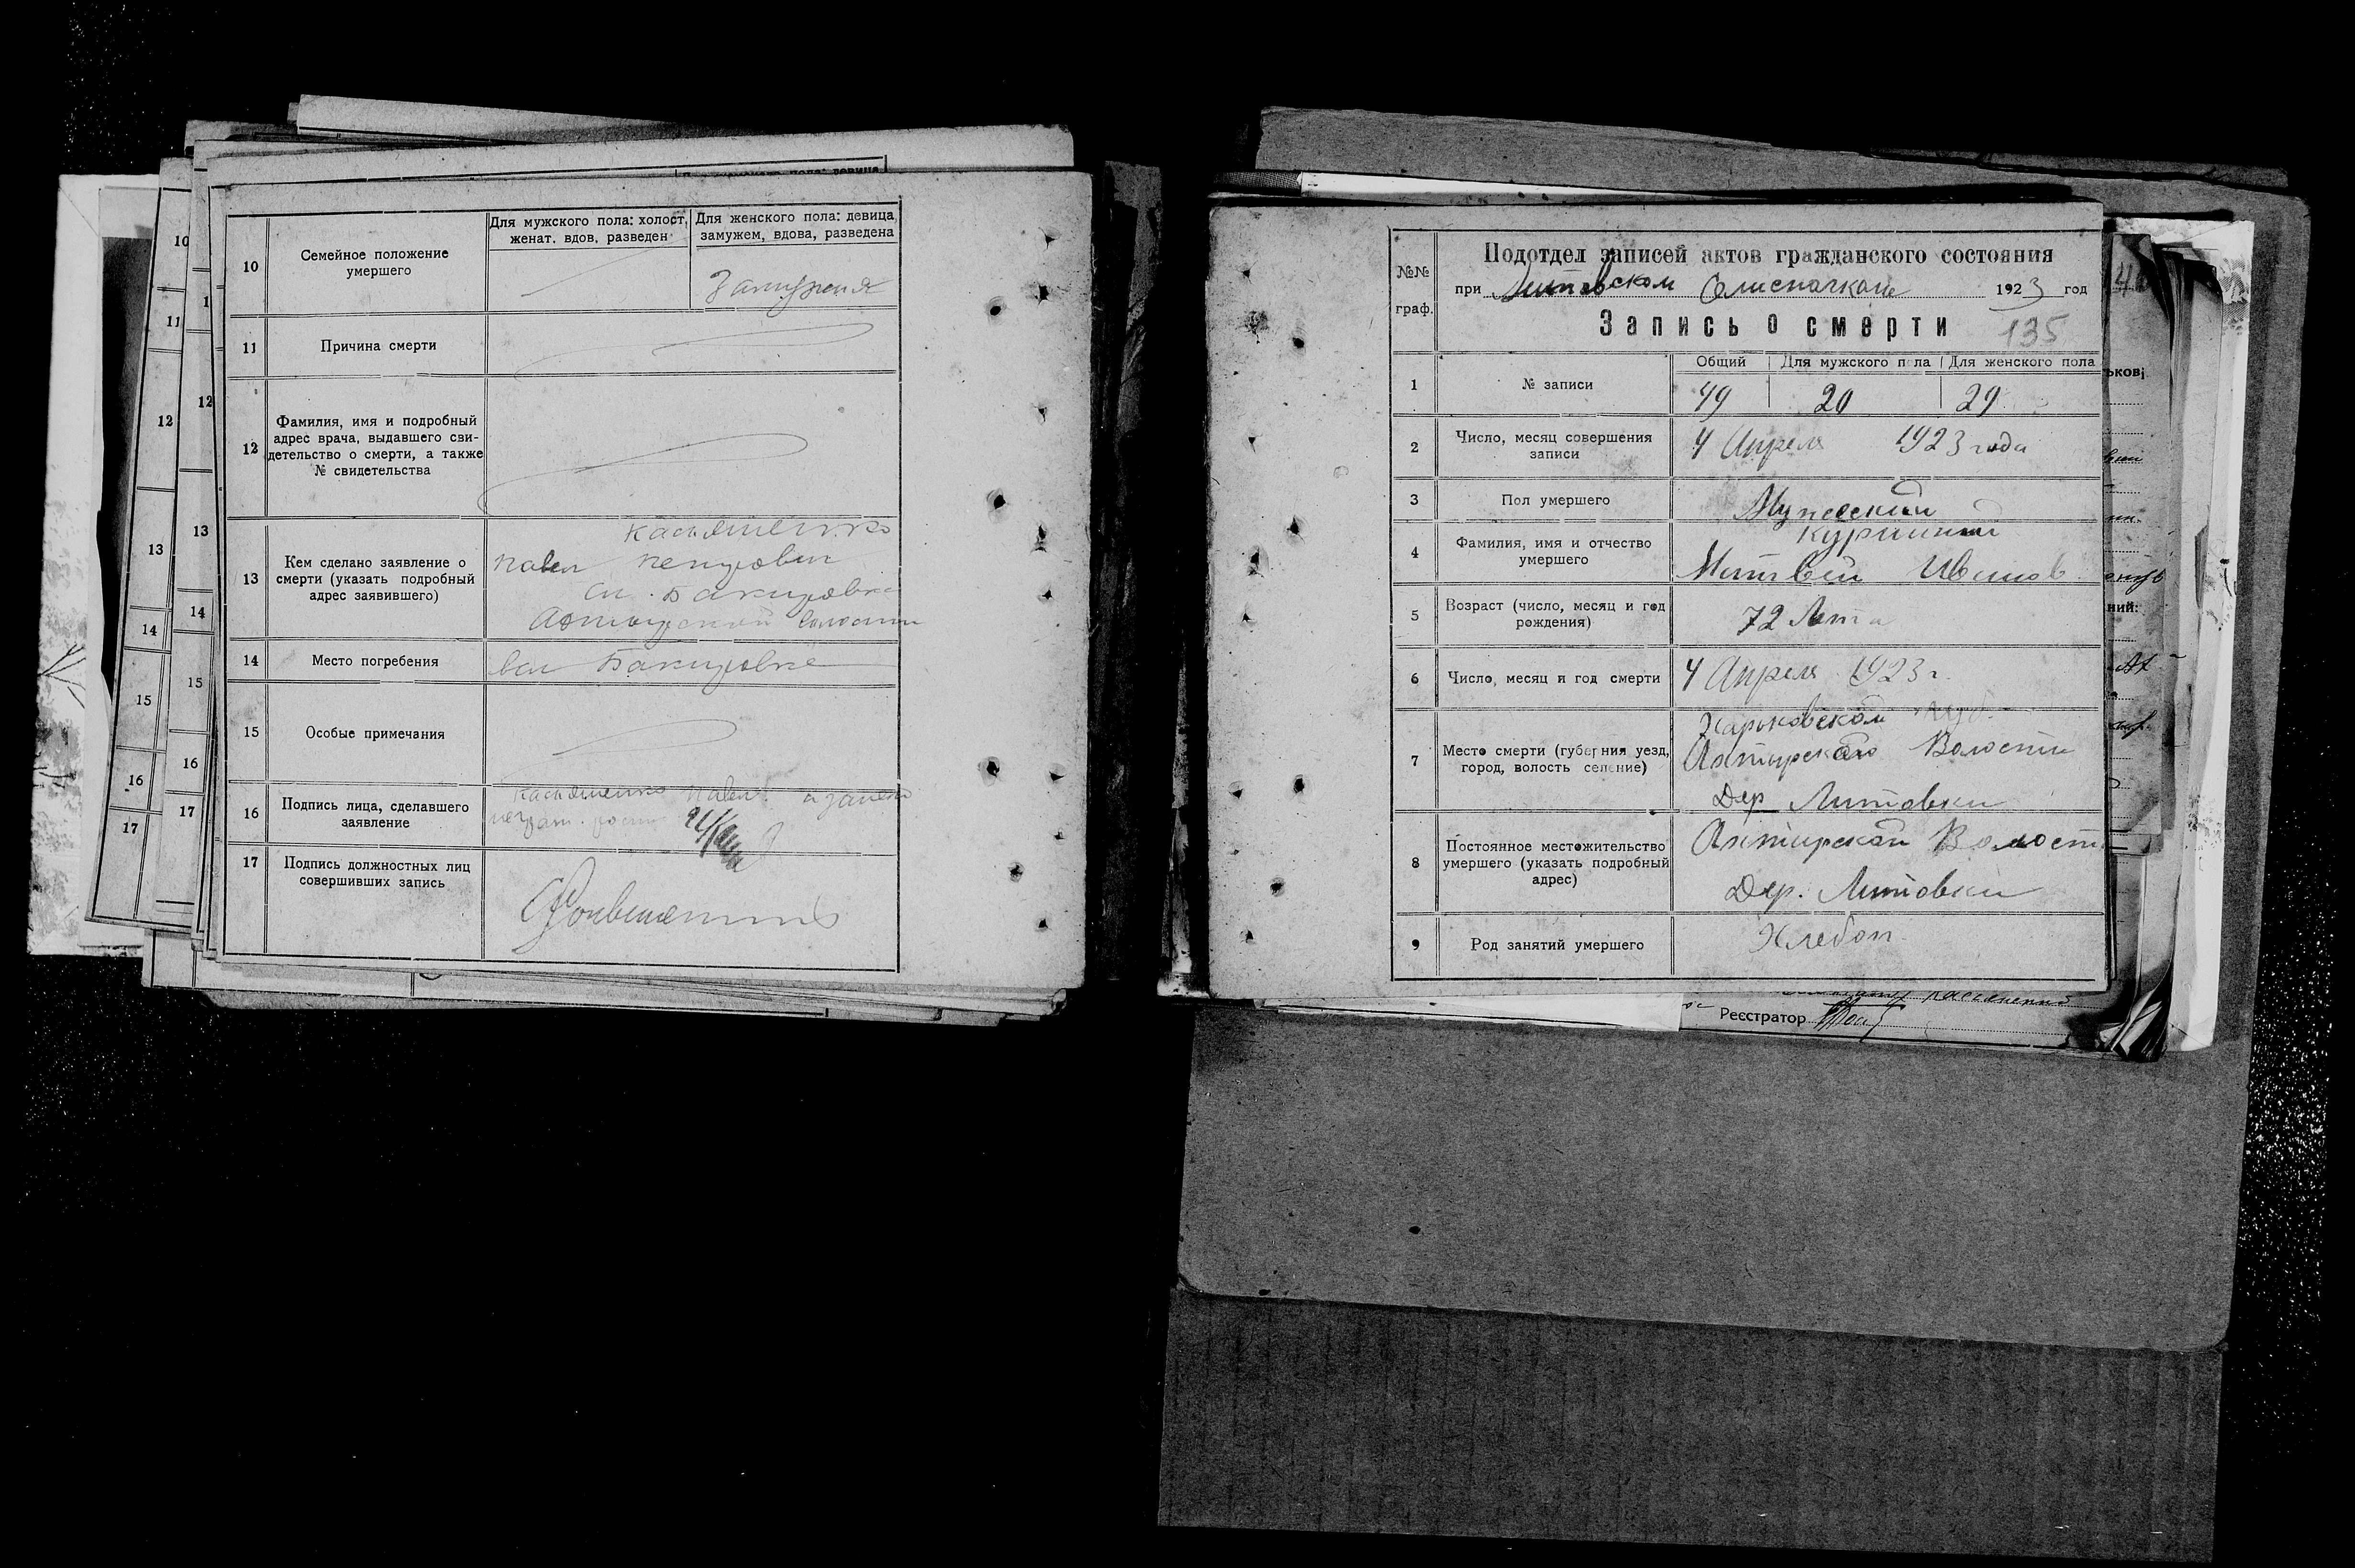 10
Семейное положение
умершего
Для мужского пола: холост,
женат, вдов, разведен
Для женского пола: девица,
замужем, вдова, разведена
Замужняя
11
Причина смерти
12
Фамилия, имя и подробный
адрес врача, выдавшего сви-
детельство о смерти, а также
№ свидетельства
13
Кем сделано заявление о
смерти (указать подробный
адрес заявившего)
Касьяненко
Павел
Бакировка
Ахтырской волости
14
Место погребения
Бакировке
15
Особые примечания
16
Подпись лица, сделавшего
заявление
Касьяненко Павел
17
Подпись должностных лиц
совершивших запись
№№
граф.
Подотдел записей актов гражданского состояния
при Литовском 1923 год
Запись о смерти
135
1
№ записи
Общий
Для мужского пола
Для женского пола
49
20
29
2
Число, месяц совершения
записи
4 Апреля 1923 года
3
Пол умершего
Мужеский
4
Фамилия, имя и отчество
умершего
Матвей Иванов
5
Возраст (число, месяц и год
рождения)
72 Лета
6
Число, месяц и год смерти
4 Апреля 1923 г.
7
Место смерти (губерния уезд,
город, волость селение)
Харьковской Губ.
Ахтырской Волости
Дер Литовки
8
Постоянное местожительство
умершего (указать подробный
адрес)
Ахтирской Волости
Дер. Литовки
9
Род занятий умершего
Хлебоп
Реєстратор
10
11
12
13
14
15
16
17
12
13
14
15
16
17